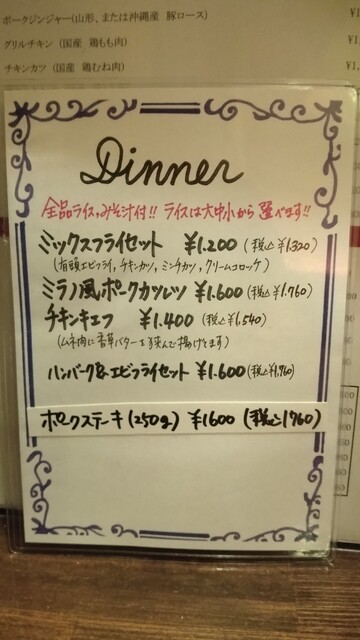 ポークジンジャー(山形、または沖縄産 豚ロース)
グリルチキン (国産 鶏もも肉)
チキンカツ (国産 鶏むね肉)
Dinner
全品ライス,みそ汁付!! ライスは大中小から選べます!!
ミックスフライセット ¥1.200 (税込¥1.320)
(有頭エビフライ,チキンカツ,ミンチカツ,クリームコロッケ)
ミラノ風ポークカツレツ ¥1.600 (税込¥1.760)
チキンキエフ ¥1.400 (税込¥1.540)
(ムネ肉に香草バターを挟んで揚げてます)
ハンバーグ&エビフライセット ¥1.600 (税込¥1.760)
ポークステーキ(250g) ¥1600 (税込1760)